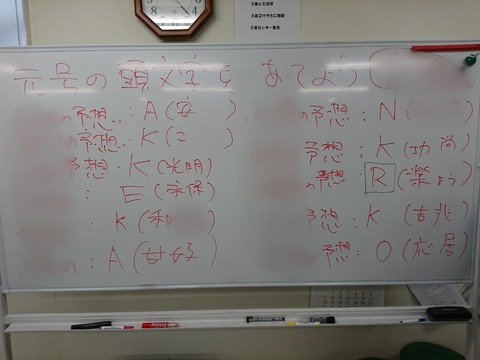 元号の頭文字をあてよう
予想:A(安)
の予想:K(こ
予想:K(光明)
:E(永保)
:K(和
の:A(甘好)
の予想:N(
予想:K(功尚)
の予想:R(楽よう)
予想:K(吉兆)
予想:O(応居)